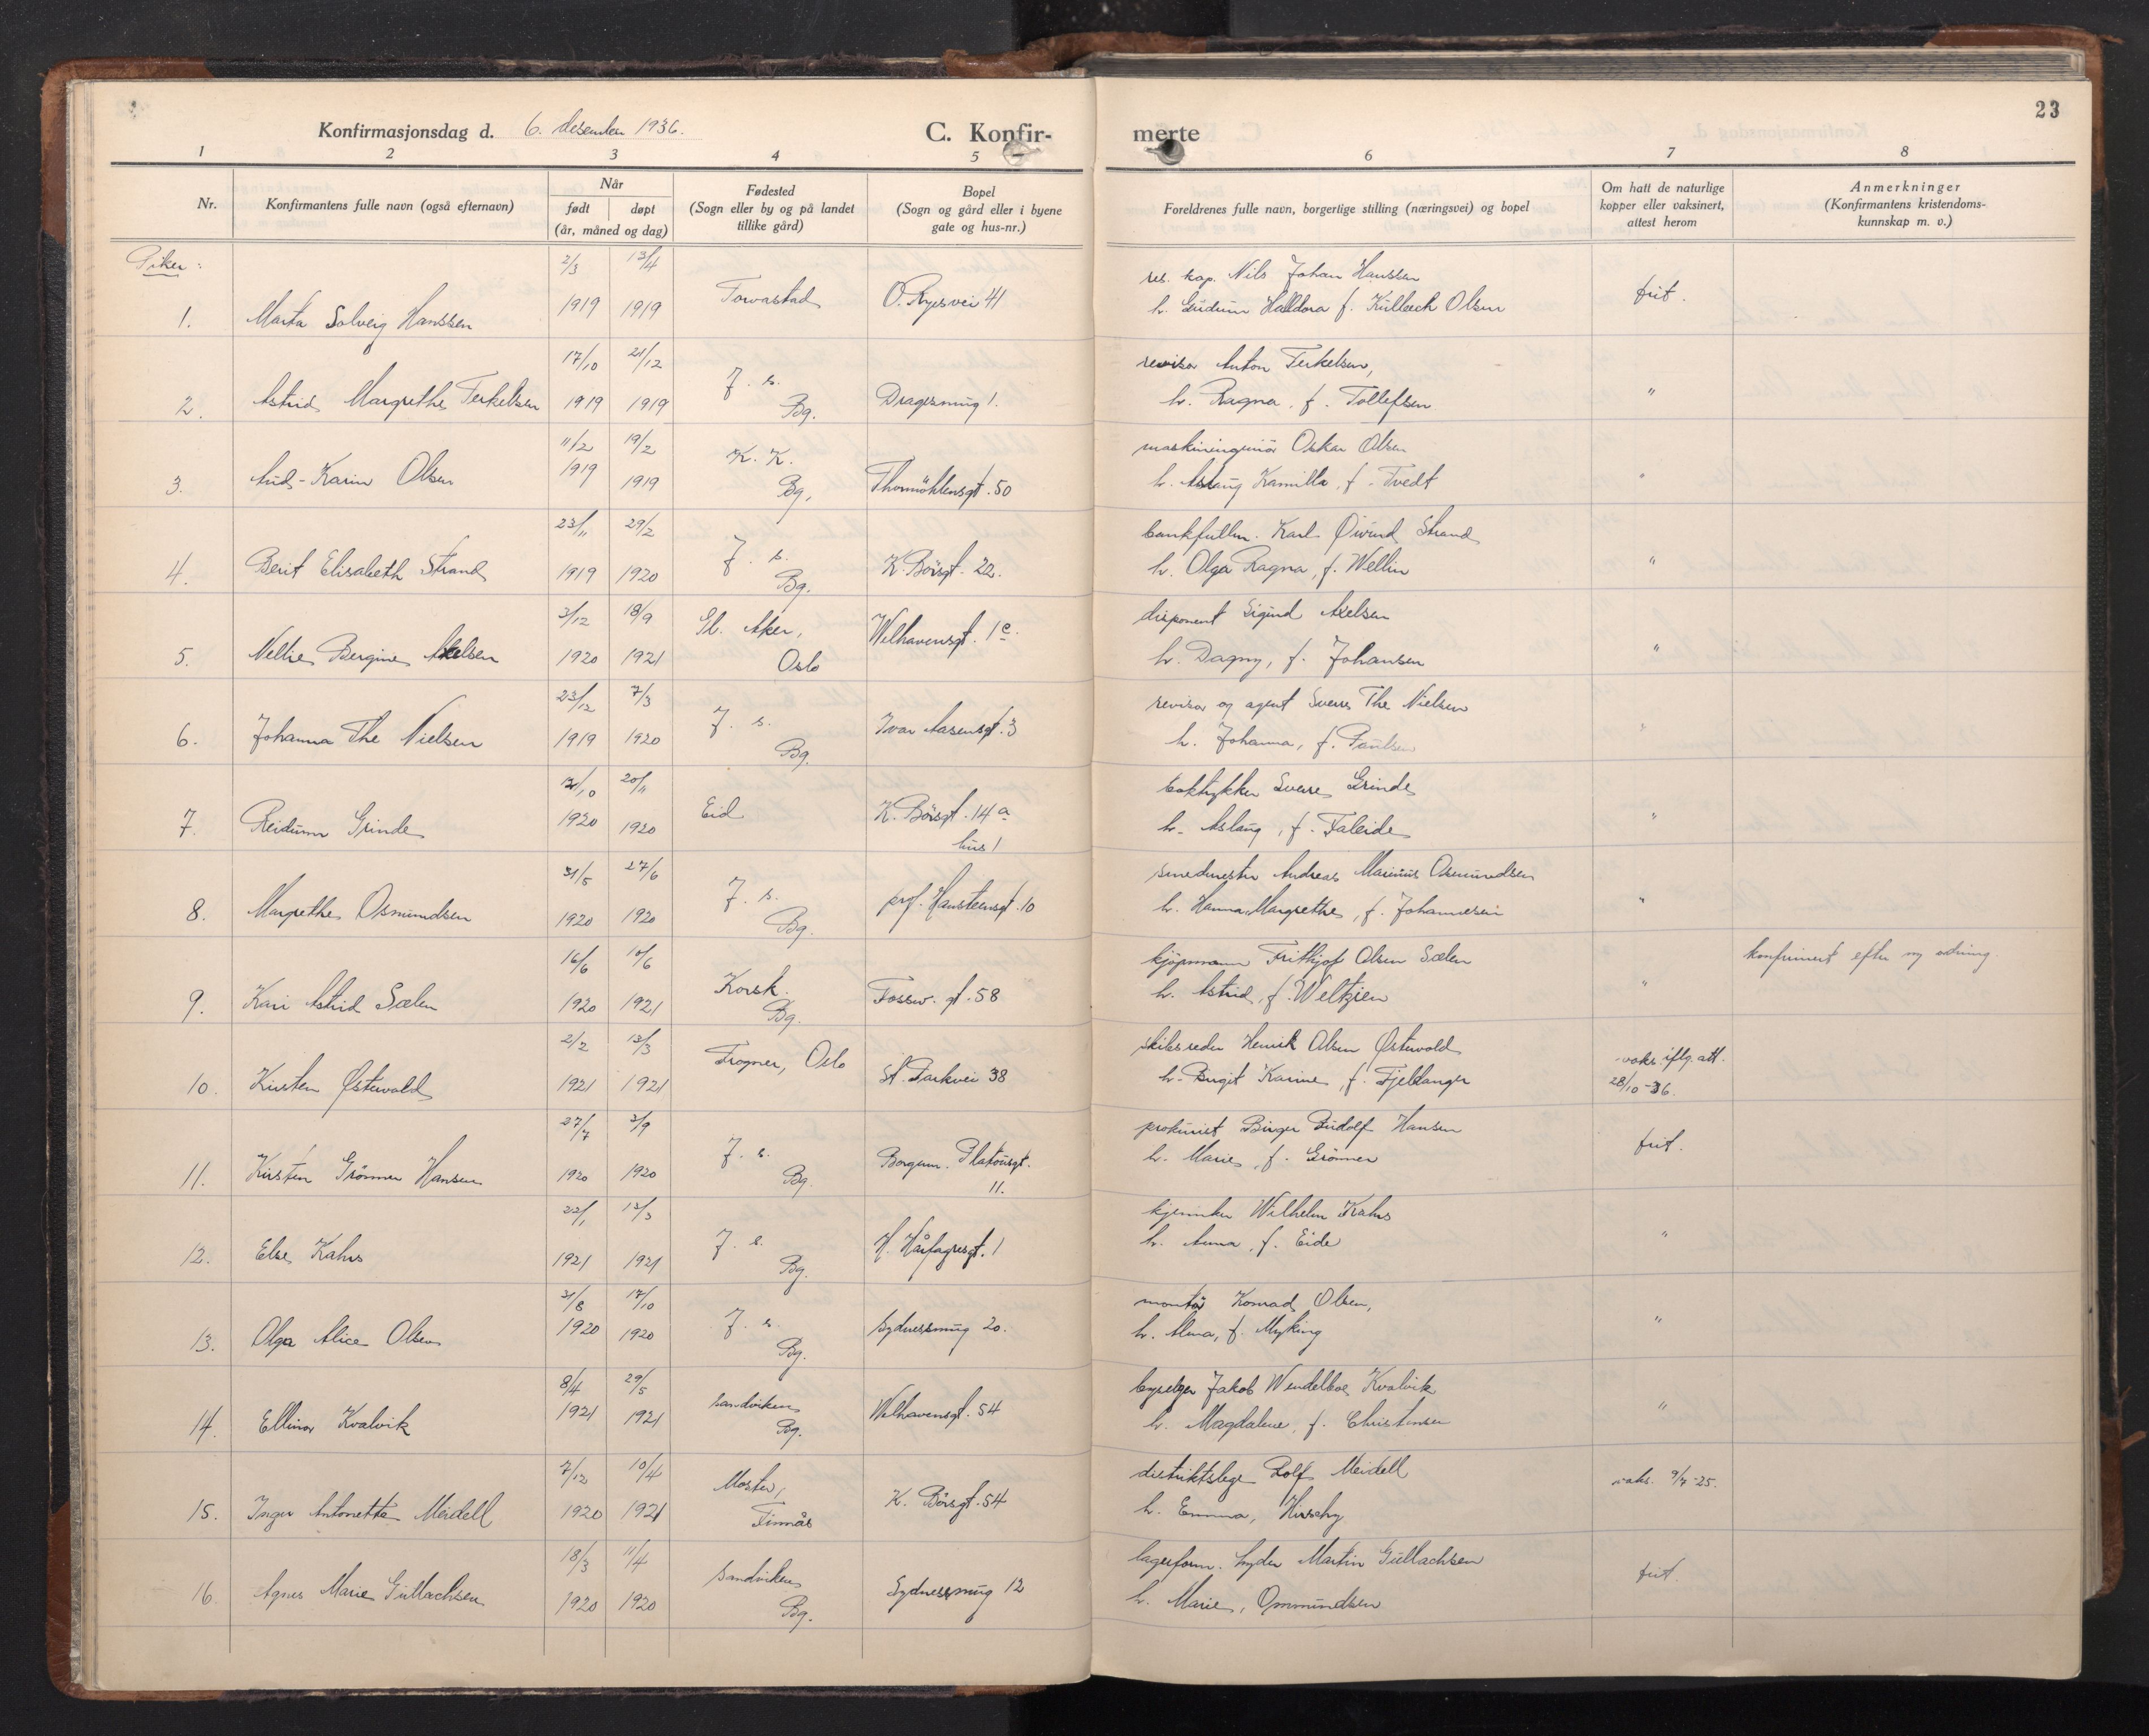 23
Konfirmasjonsdag d. 6. desember 1936.
C. Konfir-
merte
1 2 3 4 5 6 7 8
Nr.
Konfirmantens fulle navn (også efternavn)
Når
født døpt
(år, måned og dag)
Fødested
(Sogn eller by og på landet
tillike gård)
Bopel
(Sogn og gård eller i byene
gate og hus-nr.)
Foreldrenes fulle navn, borgerlige stilling (næringsvei) og bopel
Om hatt de naturlige
kopper eller vaksinert,
attest herom
Anmerkninger
(Konfirmantens kristendoms-
kunnskap m. v.)
Piker:
2/3 13/4 res. kap. Nils Johan Hanssen
1. Marta Solveig Hanssen 1919 1919 Torvastad O. Ryesvei 41 h. Gudrun Halldora f. Kullech Olsen frit.
17/10 21/12 J. k. revisor Anton Terkelsen,
2. Astrid Margrethe Terkelsen 1919 1919 Bg. Dragesmug 1. h. Ragna, f. Tollefsen "
11/2 19/2 K. K. maskiningeniør Oskar Olsen
3. Aud-Karin Olsen 1919 1919 Bg. Thormöhlensgt. 50 h. Aslaug Kamilla, f. Tvedt "
23/11 29/2 J. k. bankfullm. Karl Øivind Strand
4. Berit Elisabeth Strand 1919 1920 Bg. K. Börsgt. 22. h. Olga Ragna, f. Wellin "
3/12 18/9 Gl. Aker, disponent Sigurd Axelsen
5. Nellie Bergine Axelsen 1920 1921 Oslo Welhavensgt. 1c. h. Dagny, f. Johansen "
23/12 7/3 J. k. revisor og agent Sverre The Nielsen
6. Johanna The Nielsen 1919 1920 Bg. Ivar Aasensgt. 3 h. Johanna, f. Paulsen "
20/11 boktrykker Sverre Grinde
7. Reidunn Grinde 1920 1920 Eid K. Börsgt. 14a h. Aslaug, f. Faleide "
hus 1
31/5 27/6 J. k. smedmester Andreas Marinus Osmundsen
8. Margrethe Osmundsen 1920 1920 Bg. prof. Hansteensgt. 10 h. Hanna Margrethe, f. Johannesen "
16/6 10/6 Korsk. kjøpmann Frithjof Olsen Sælen konfirmert efter ny ordning
9. Kari Astrid Sælen 1920 1921 Bg. Fossw. gt. 58 h. Astrid, f. Weltzien "
2/2 13/3 Frogner, Oslo skibsreder Henrik Olsen Østervold vaks. iflg. att.
10. Kirsten Østervold 1921 1921 St. Parkvei 38 h. Birgit Karine, f. Fjeldanger 28/10-36.
27/7 3/9 J. k. prokurist Birger Rudolf Hansen
11. Kirsten Grönner Hansen 1920 1920 Bg. Borgerm. Platousgt. h. Marie, f. Grönner frit.
11.
22/1 13/3 J. k. Wilhelm Kahrs
12. Else Kahrs 1921 1921 Bg. H. Hårfagresgt. 1 h. Anna, f. Eide "
31/8 17/10 J. k. montör Konrad Olsen,
13. Olga Alice Olsen 1920 1920 Bg. Sydnessmug 20. h. Alma, f. Myking "
8/4 29/5 Sandviken byselger Jakob Wendelboe Kvalvik
14. Ellinor Kvalvik 1921 1921 Bg. Welhavensgt. 54 h. Magdalene, f. Christensen "
7/12 10/4 Moster, distriktslege Rolf Meidell
15. Inger Antonette Meidell 1920 1921 Finnås K. Börsgt. 54 h. Emma, vaks. 9/7-25.
18/3 11/4 Sandviken lagerform. Lyder Martin Gullachsen
16. Agnes Marie Gullachsen 1920 1920 Bg. Sydnessmug 12 h. Marie, Ommundsen frit.